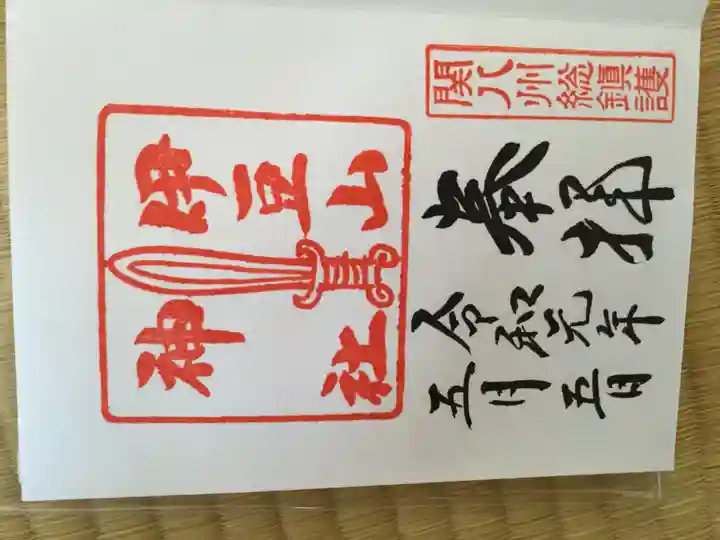 関八州総鎭護
奉拝
令和元年
五月五日
伊豆山
神社